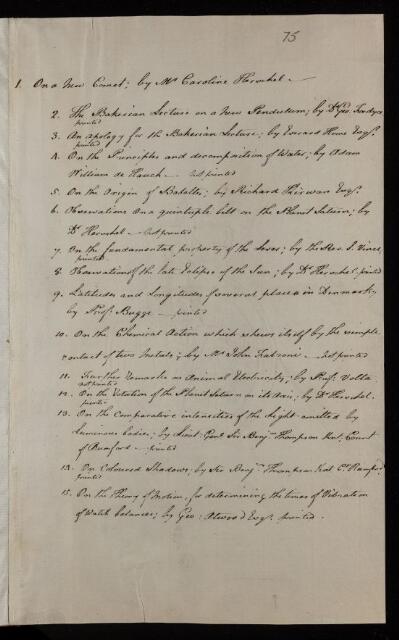 75
1. On a New Comet; by Mrs Caroline Herschel
2. The Bakerian Lecture on a New Pendulum; by Dr Geo: Fordyce
printed
3. An apology for the Bakerian Lecture; by Everard Home Esqr.
printed
4. On the Principles and decomposition of Water; by Adam
William de Hauch. not printed
5. On the Origin of Basaltes; by Richard Kirwan Esqr.
6. Observations on a quintuple belt on the Planet Saturn; by
Dr Herschel. not printed
7. On the fundamental property of the Lever; by the Rev. S. Vince
printed
8. Observations of the late Eclipse of the Sun; by Dr Herschel. printed
9. Latitudes and Longitudes of several places in Denmark;
by Prof. Bugge. printed
10. On the Chemical Action which shews itself by the simple
contact of two Metals; by Mr John Fabroni. not printed
11. Further remarks on Animal Electricity; by Prof. Volta
not printed
12. On the Rotation of the Planet Saturn on its Axis; by Dr Herschel.
printed
13. On the Comparative intensities of the Light emitted by
Luminous bodies; by Lieut. Genl. Sir Benjn. Thompson Knt. Count
of Rumford. printed
13. On Coloured Shadows; by Sir Benjn. Thompson Knt Ct. Rumford
printed
15. On the Theory of Motion, for determining the times of Vibration
of Watch balances; by Geo: Atwood Esqr. printed.